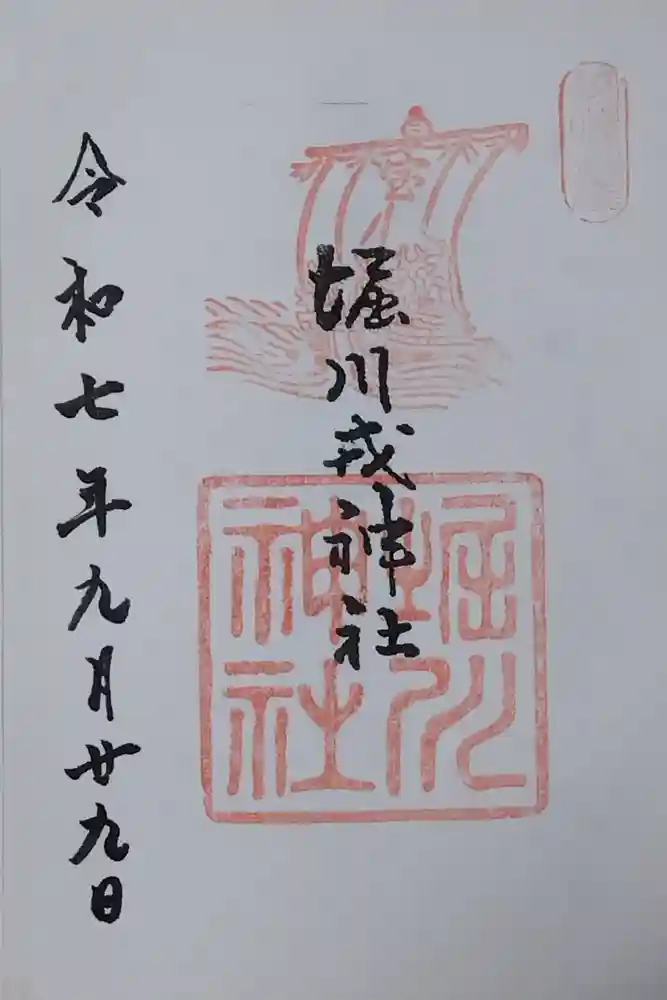 堀川戎神社
堀川
神社
宝
令和七年九月廿九日